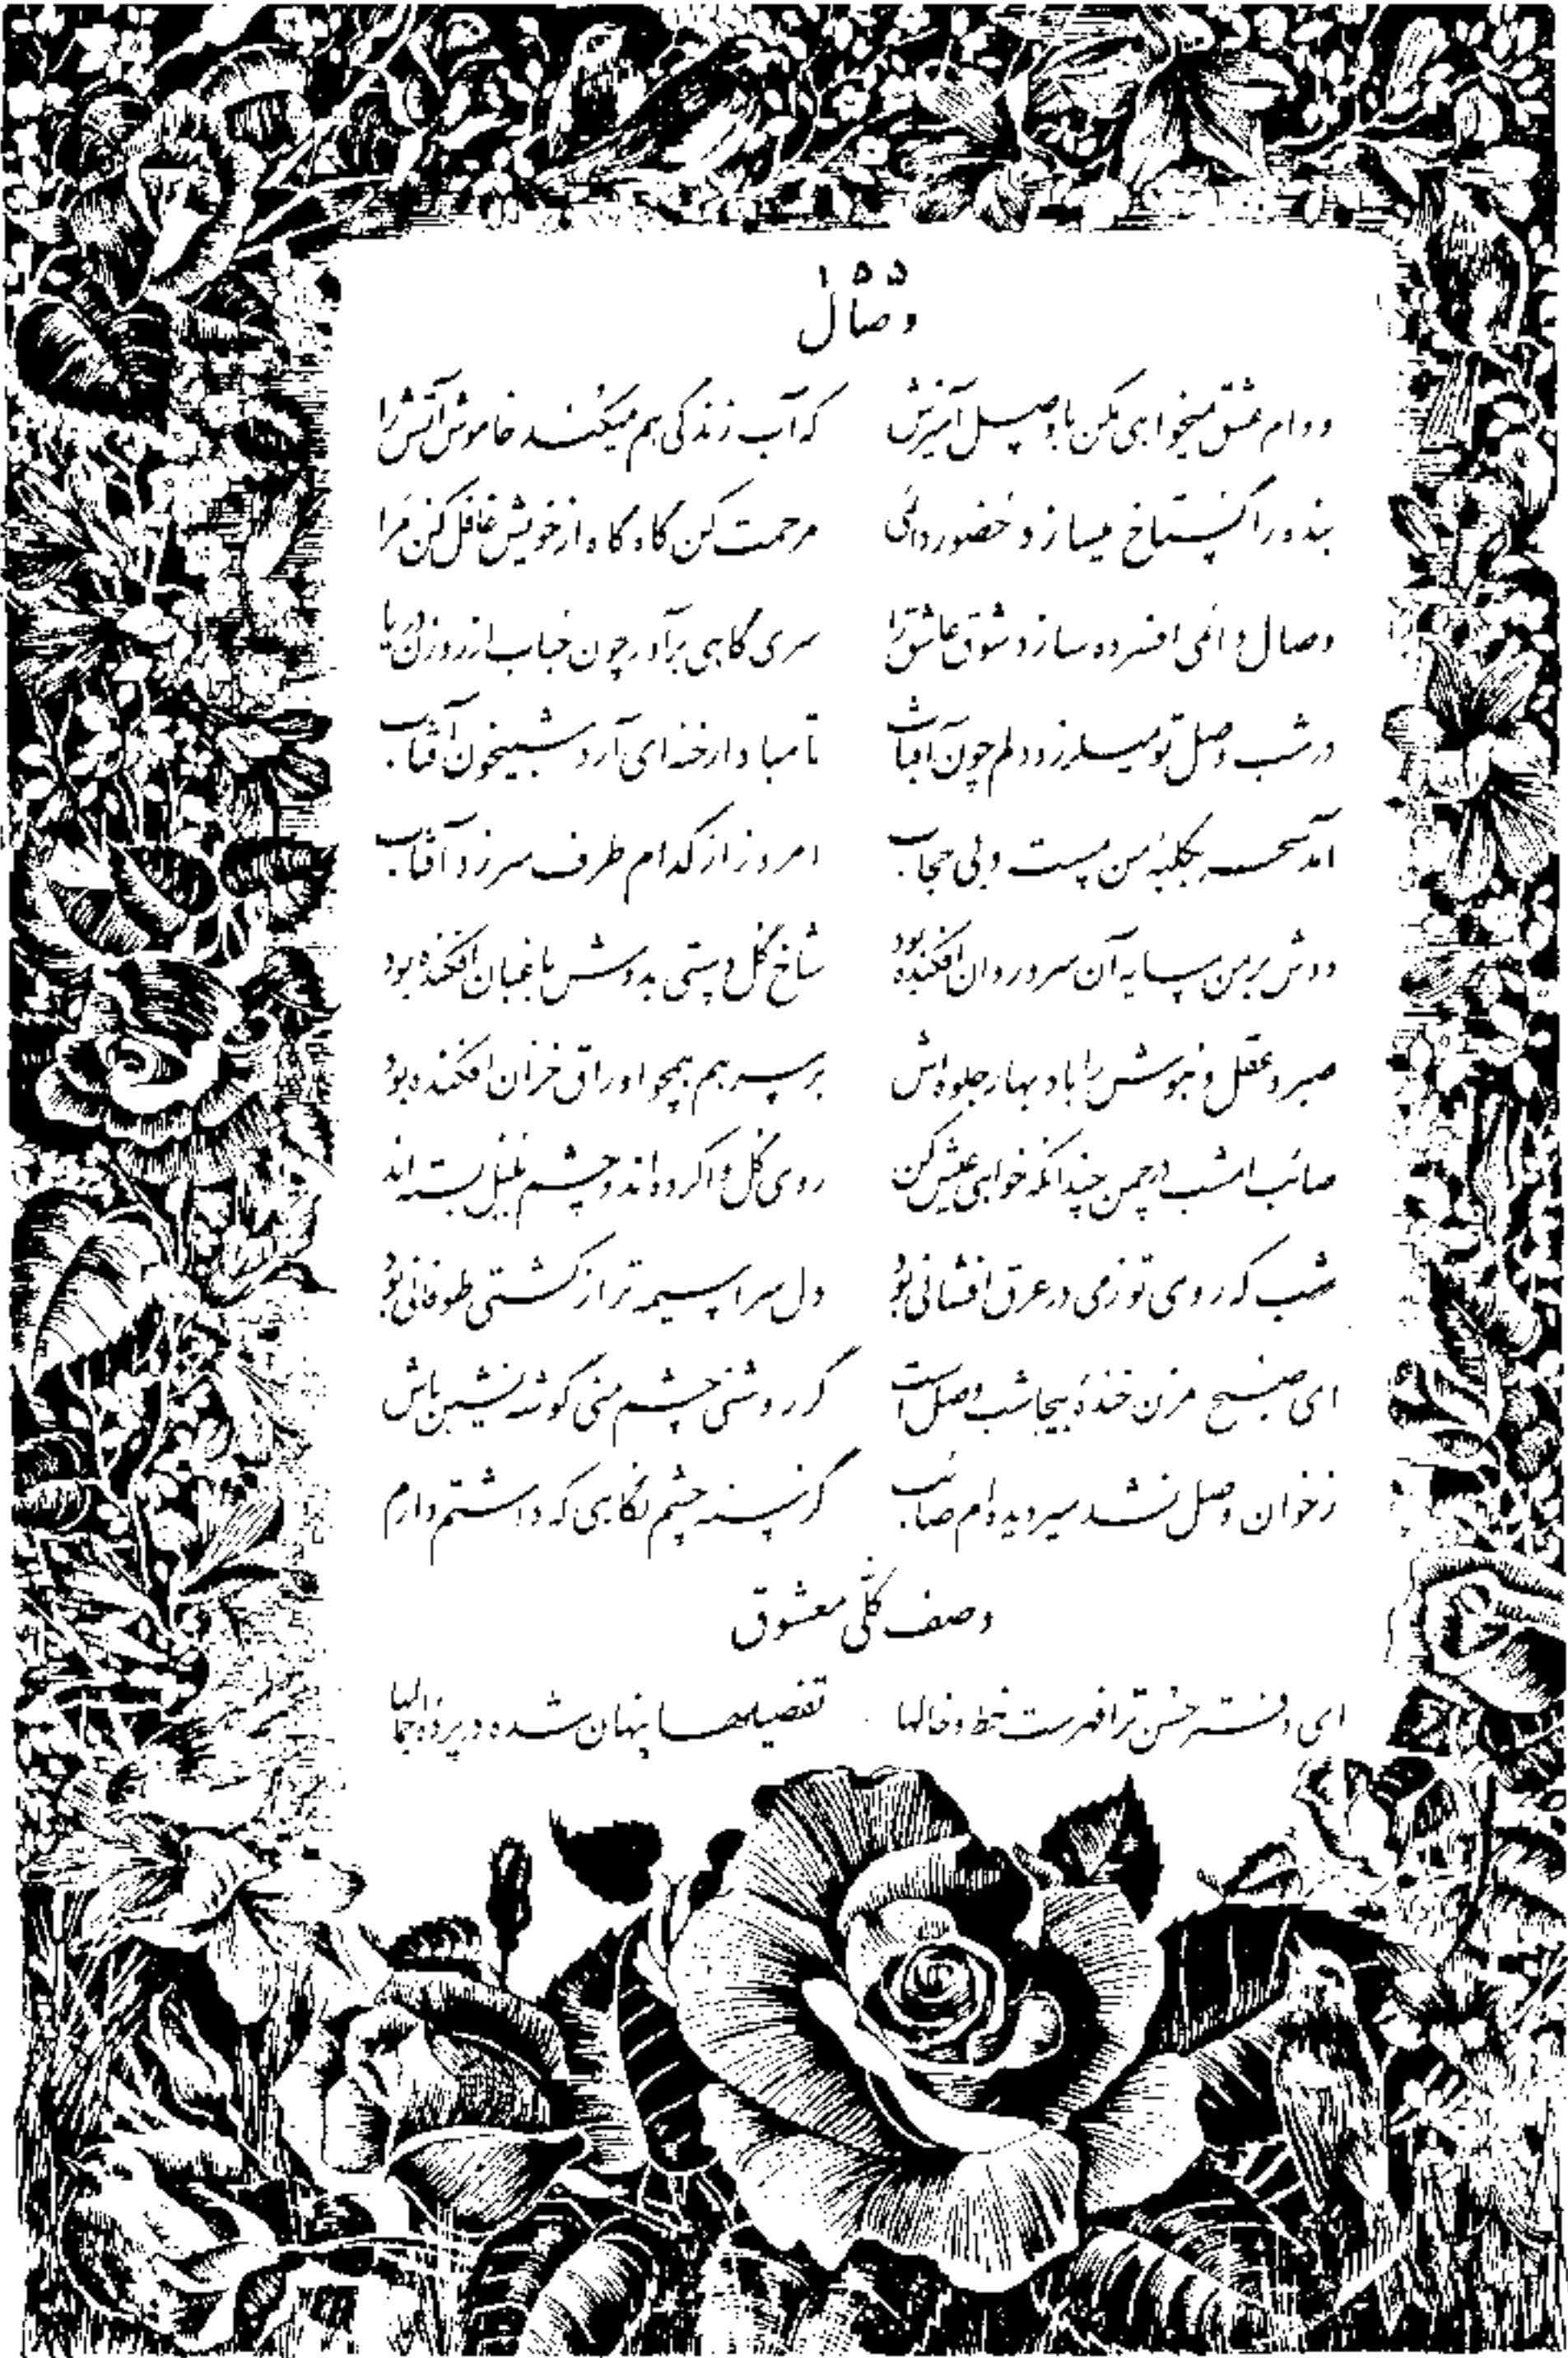 ۱۵۵
وصال
دوام عشق میخواهی مکن با وصل آمیزش که آب زندگی هم میکند خاموش آتش را
بنده را گستاخ میسازد حضور دائمی مرحمت کن گاه گاه از خویش غافل کن مرا
وصال دائمی افسرده سازد شوق عاشق را سری گاهی برآور چون حباب از روزن دریا
در شب وصل تو میلرزد دلم چون آفتاب تا مبادا رخنه‌ای آرد شبیخون آفتاب
آمد سحر بکلبهٔ من مست و بی حجاب امروز از کدام طرف سر زد آفتاب
دوش بر من سایه آن سرو روان افکنده بود شاخ گل دستی بدوش باغبان افکنده بود
صبر و عقل و هوش را باد بهار جلوه‌اش بر سر هم همچو اوراق خزان افکنده بود
صائب امشب در چمن چندانکه خواهی عیش کن روی گل وا کرده‌اند و چشم بلبل بسته‌اند
شب که روی تو ز می در عرق افشانی بود دل سراسیمه تر از کشتی طوفانی بود
ای صبح مزن خندهٔ بیجا شب وصل است گر روشنی چشم منی گوشه نشین باش
ز خوان وصل نشد سیر دیده‌ام صائب گرسنه چشم نگاهی که داشتم دارم
وصف کلّی معشوق
ای دفتر حسن ترا فهرست خط و خالها تفصیلها پنهان شده در پرده اجمالها